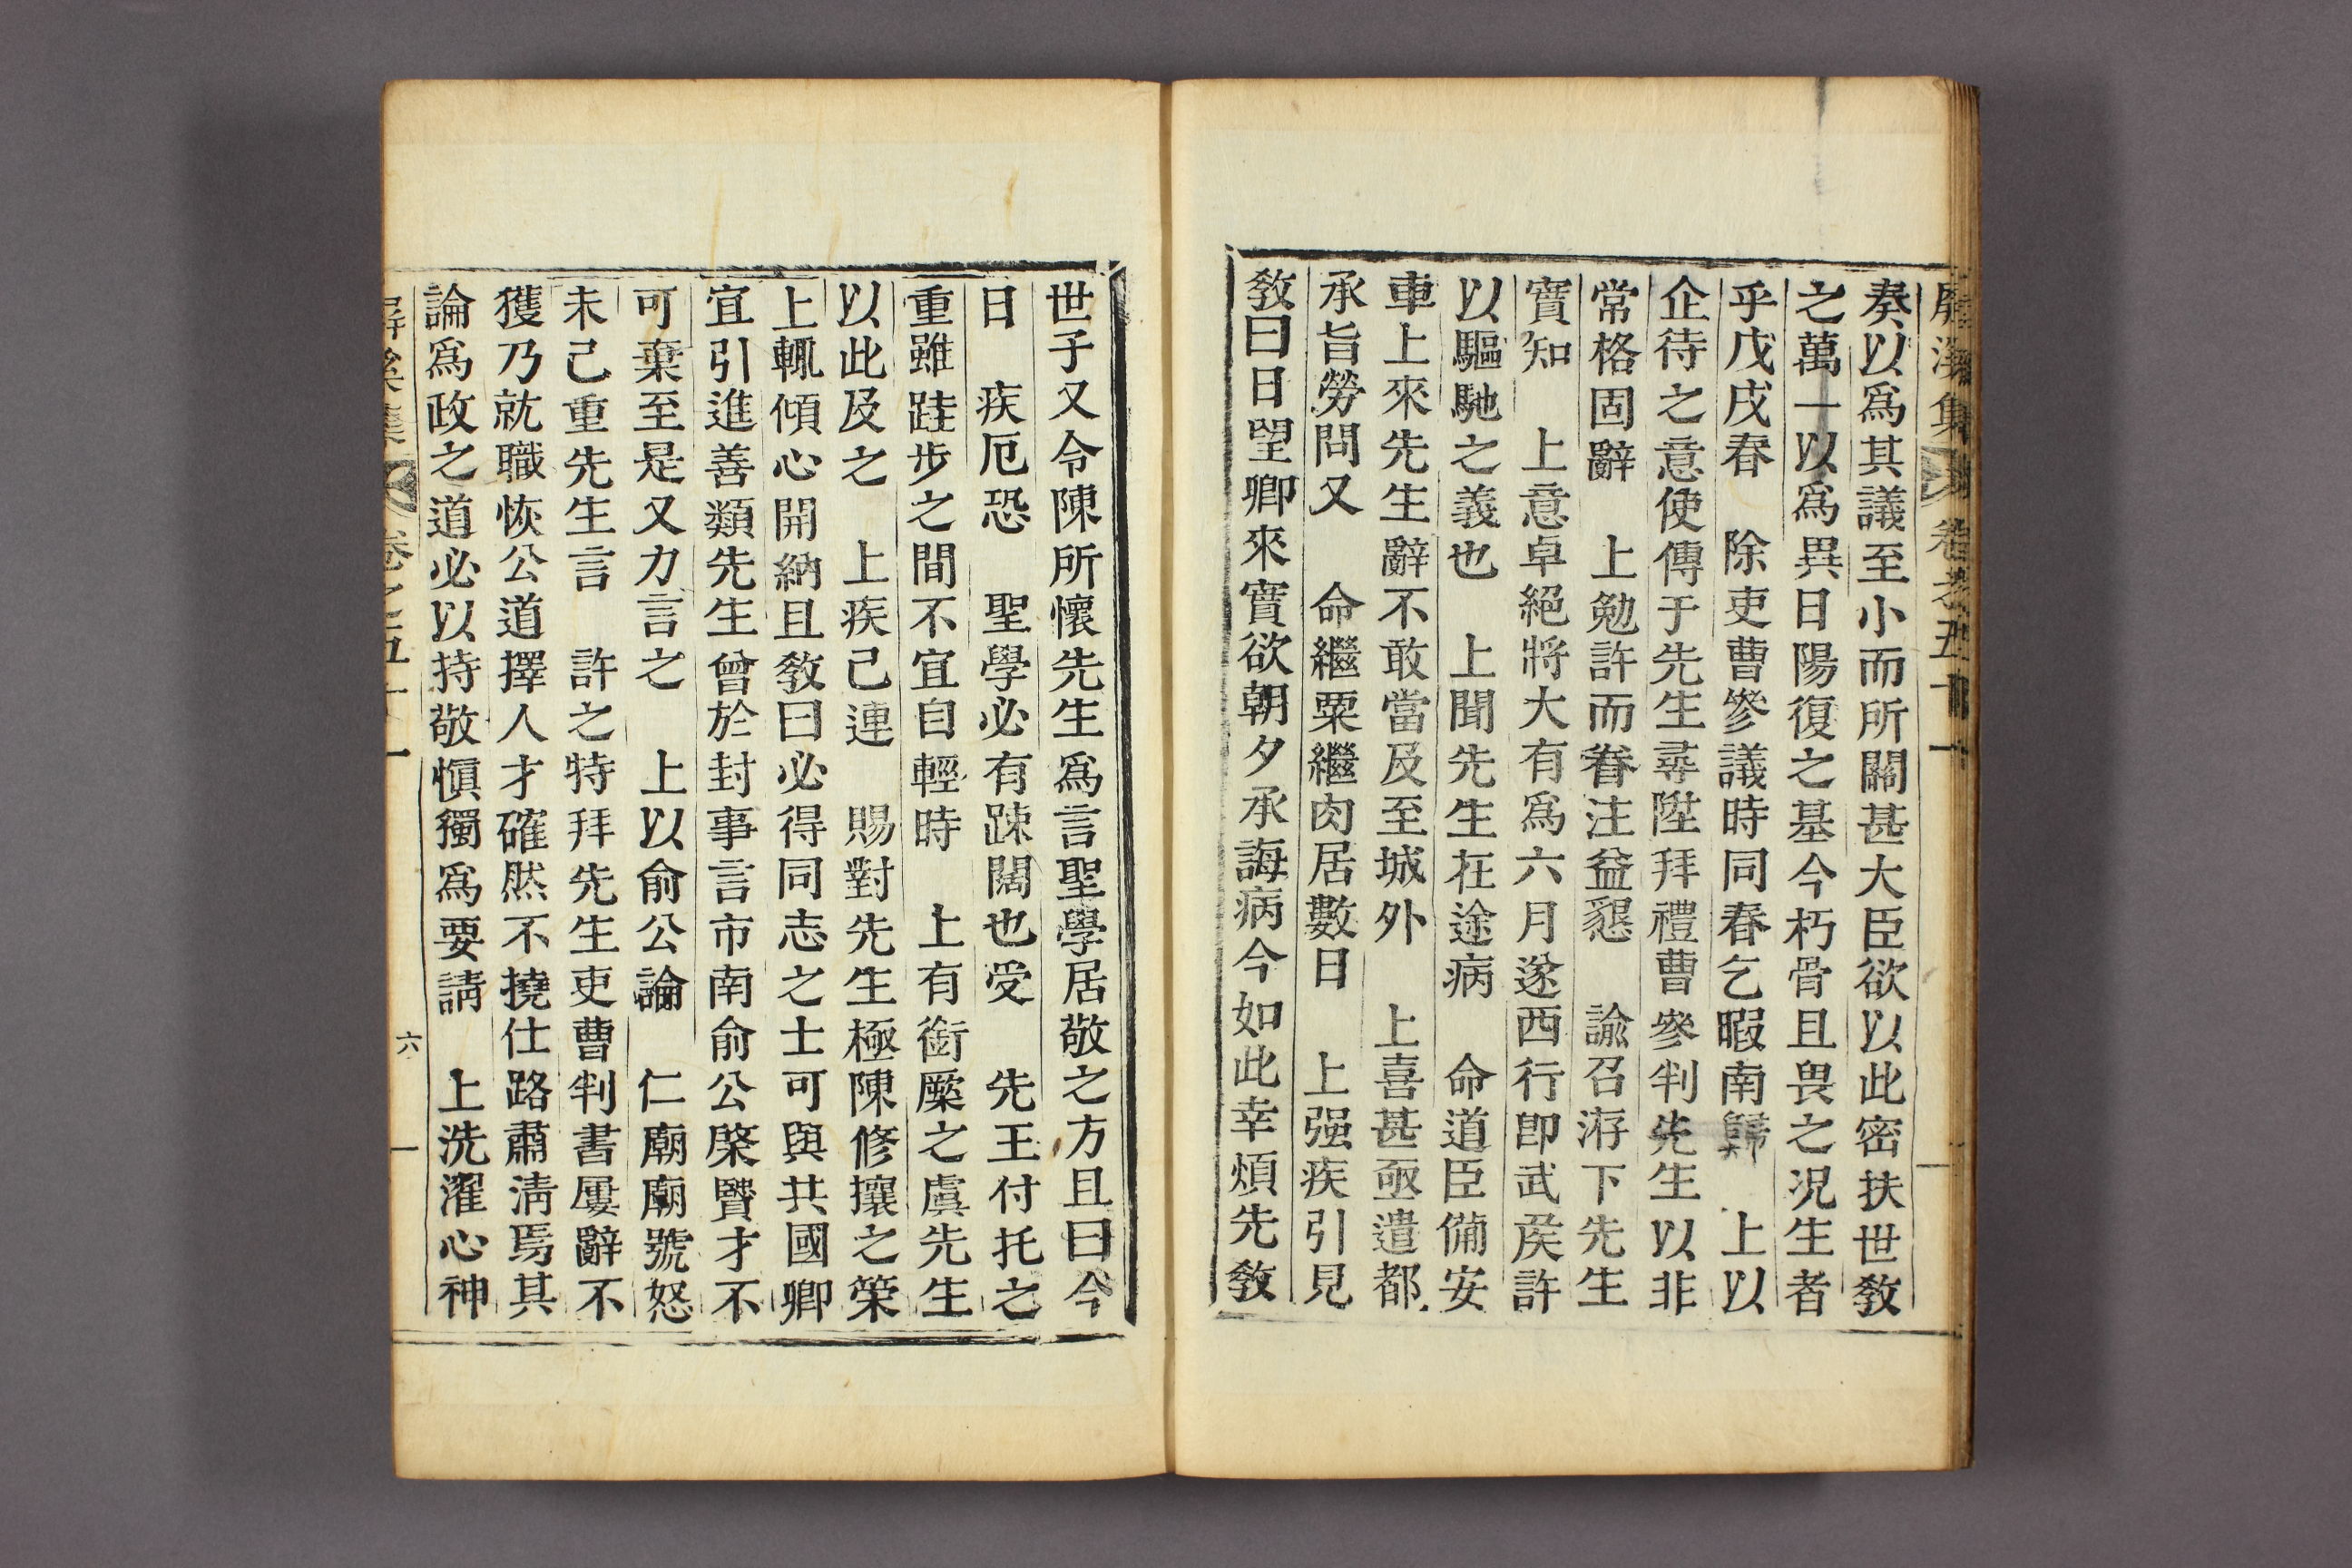 屛溪集 卷之五十一
奏以爲其議至小而所關甚大臣欲以此密扶世敎
之萬一以爲異日陽復之基今朽骨且畏之況生者
乎戊戌春 除吏曹參議時同春乞暇南歸 上以
企待之意使傳于先生尋陞拜禮曹參判先生以非
常格固辭 上勉許而眷注益懇 諭召洊下先生
實知 上意卓絕將大有爲六月遂西行卽武侯許
以驅馳之義也 上聞先生在途病 命道臣備安
車上來先生辭不敢當及至城外 上喜甚亟遣都
承旨勞問又 命繼粟繼肉居數日 上强疾引見
敎曰日望卿來實欲朝夕承誨病今如此幸煩先敎
世子又令陳所懷先生爲言聖學居敬之方且曰今
日 疾厄恐 聖學必有踈闊也受 先王付托之
重雖跬步之間不宜自輕時 上有銜橜之虞先生
以此及之 上疾已連 賜對先生極陳修攘之策
上輒傾心開納且敎曰必得同志之士可與共國卿
宜引進善類先生曾於封事言市南俞公棨賢才不
可棄至是又力言之 上以俞公論 仁廟廟號怒
未已重先生言 許之特拜先生吏曹判書屢辭不
獲乃就職恢公道擇人才確然不撓仕路肅淸焉其
論爲政之道必以持敬愼獨爲要請 上洗濯心神
屛溪集 卷之五十一 六